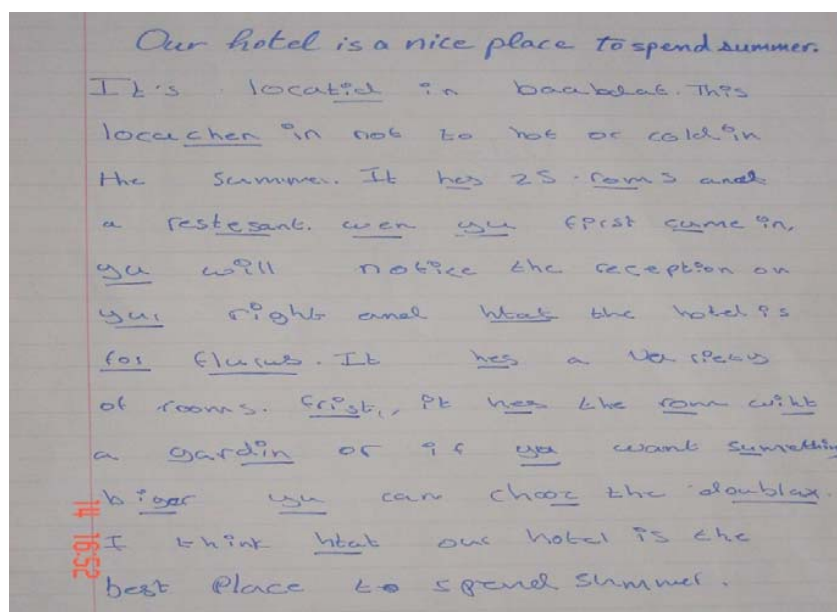 Our hotel is a nice place to spend summer.
It's locatid in baabdat. This
locachen in not to hot or cold in
the summer. It hes 25 roms and
a restesant. wen yu first came in,
yu will notice the reception on
yur right and htat the hotel is
for flurus. It hes a variety
of rooms. frist, it hes the rom wiht
a gardin or if yu want sumething
biger yu can chooz the doublax.
I think htat our hotel is the
best place to spend summer.
14 16:52